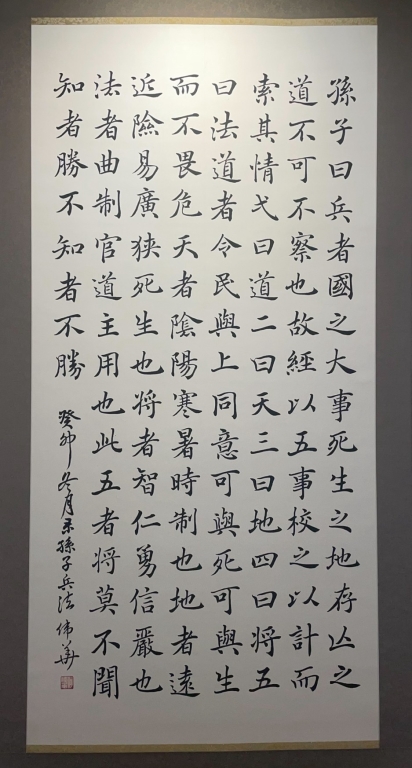 孫子曰兵者國之大事死生之地存亡之
道不可不察也故經以五事校之以計而
索其情弌曰道二曰天三曰地四曰将五
曰法道者令民與上同意可與死可與生
而不畏危天者陰陽寒暑時制也地者遠
近險易廣狹死生也将者智仁勇信嚴也
法者曲制官道主用也此五者将莫不聞
知者勝不知者不勝
癸卯冬月录孫子兵法伟華